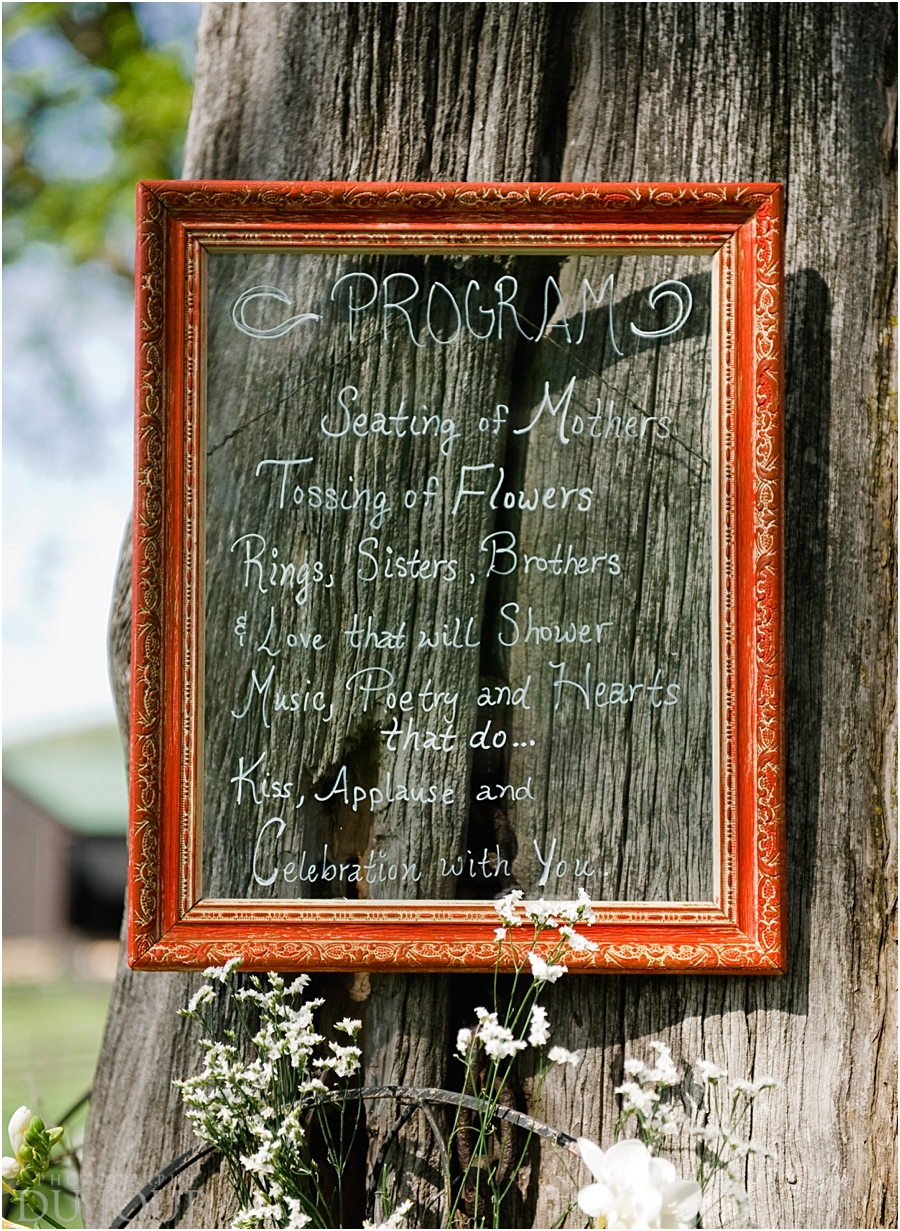 PROGRAM
Seating of Mothers
Tossing of Flowers
Rings, Sisters, Brothers
& Love that will Shower
Music, Poetry and Hearts
that do...
Kiss, Applause and
Celebration with You.